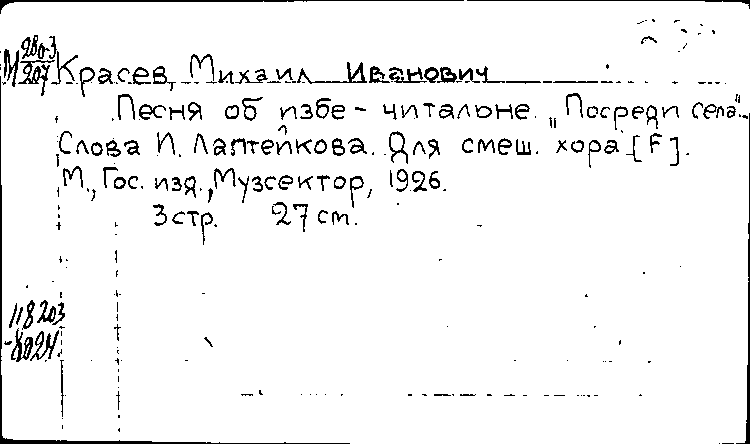 М 280-3/207
Красев, Михаил Иванович
Песня об избе-читальне. "Посреди села".
Слова И. Лаптейкова. Для смеш. хора [F].
М., Гос. изд., Музсектор, 1926.
3 стр. 27 см.
118203